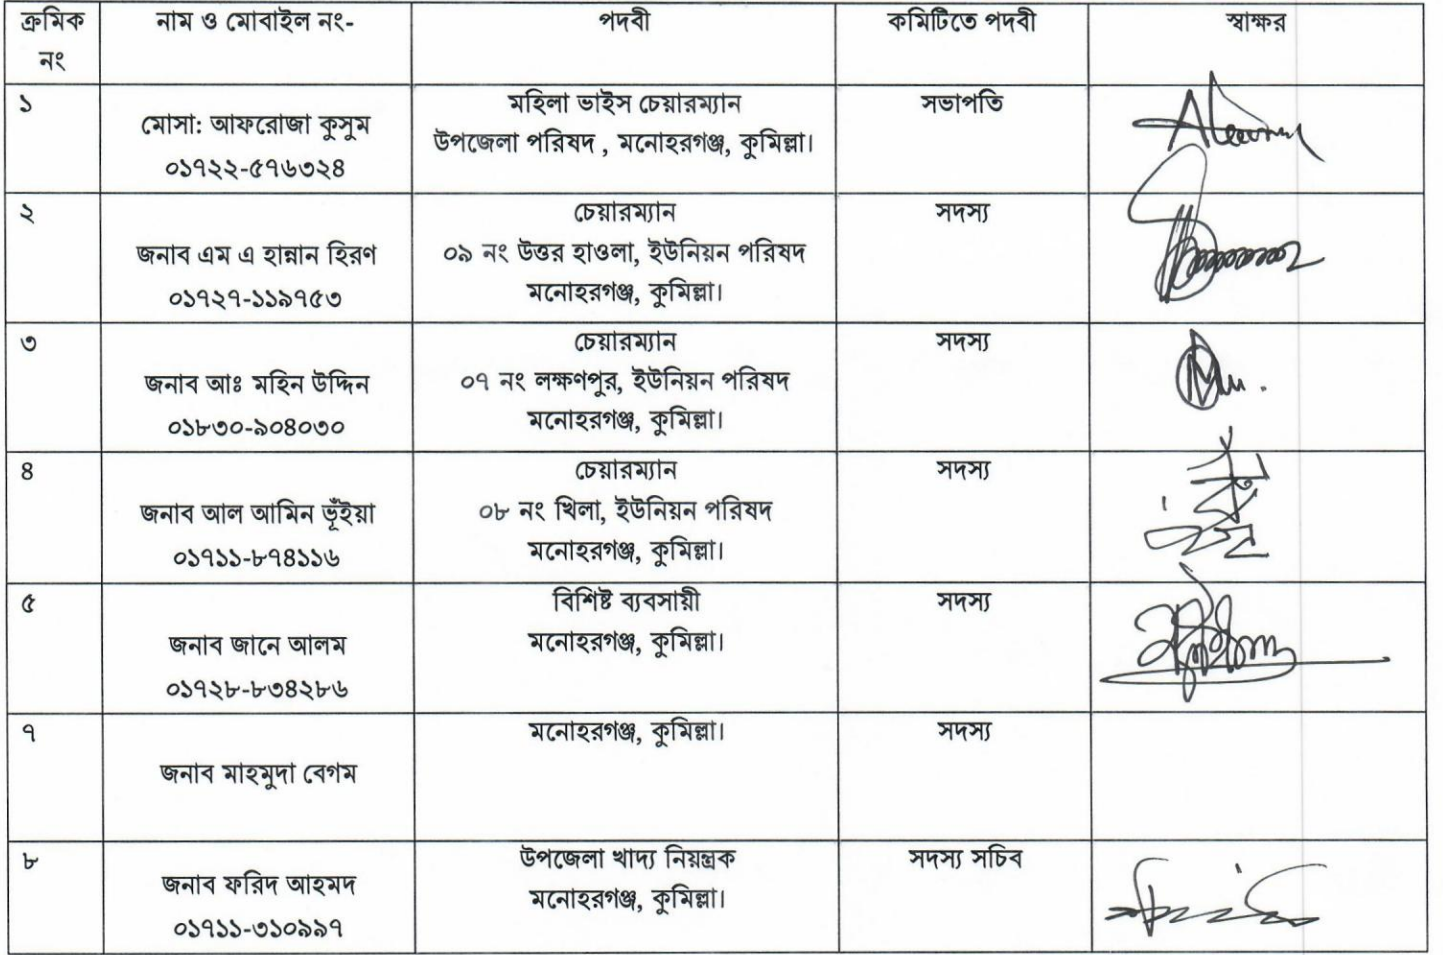 ক্রমিক নং
নাম ও মোবাইল নং-
পদবী
কমিটিতে পদবী
স্বাক্ষর
১
মোসা: আফরোজা কুসুম
০১৭২২-৫৭৬৩২৪
মহিলা ভাইস চেয়ারম্যান
উপজেলা পরিষদ , মনোহরগঞ্জ, কুমিল্লা।
সভাপতি
২
জনাব এম এ হান্নান হিরণ
০১৭২৭-১১৯৭৫৩
চেয়ারম্যান
০৯ নং উত্তর হাওলা, ইউনিয়ন পরিষদ
মনোহরগঞ্জ, কুমিল্লা।
সদস্য
৩
জনাব আঃ মহিন উদ্দিন
০১৮৩০-৯০৪০৩০
চেয়ারম্যান
০৭ নং লক্ষণপুর, ইউনিয়ন পরিষদ
মনোহরগঞ্জ, কুমিল্লা।
সদস্য
৪
জনাব আল আমিন ভূঁইয়া
০১৭১১-৮৭৪১১৬
চেয়ারম্যান
০৮ নং খিলা, ইউনিয়ন পরিষদ
মনোহরগঞ্জ, কুমিল্লা।
সদস্য
৫
জনাব জানে আলম
০১৭২৮-৮৩৪২৮৬
বিশিষ্ট ব্যবসায়ী
মনোহরগঞ্জ, কুমিল্লা।
সদস্য
৭
জনাব মাহমুদা বেগম
মনোহরগঞ্জ, কুমিল্লা।
সদস্য
৮
জনাব ফরিদ আহমদ
০১৭১১-৩১০৯৯৭
উপজেলা খাদ্য নিয়ন্ত্রক
মনোহরগঞ্জ, কুমিল্লা।
সদস্য সচিব